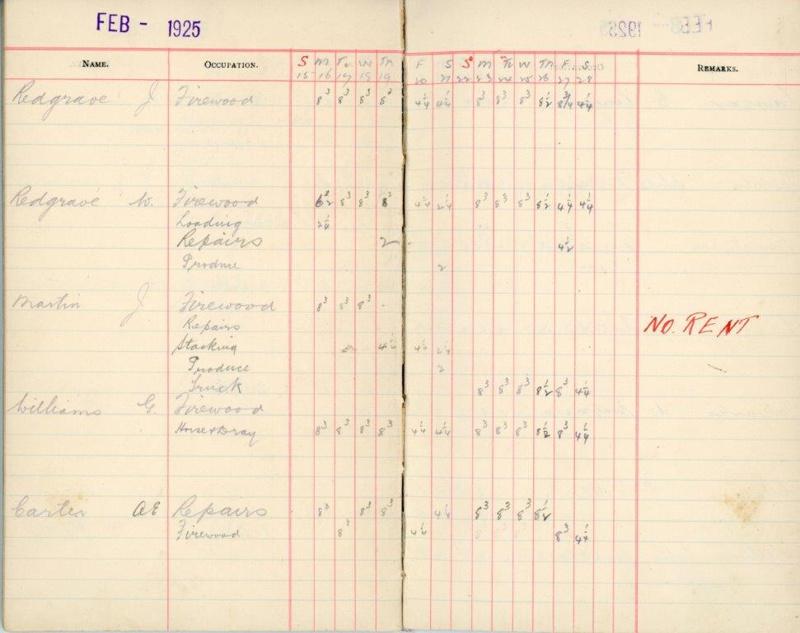 FEB - 1925
NAME. OCCUPATION. S M Tu W Th F S S M Tu W Th F S REMARKS.
15 16 17 18 19 20 21 22 23 24 25 26 27 28
Redgrave J Firewood 8 3 8 3 8 3 8 3 4 1/4 4 1/4 8 3 8 3 8 3 8 1/2 8 3/4 4 1/4
Redgrave W. Firewood 8 3 8 3 8 3 4 1/4 2 1/4 8 3 8 3 8 3 8 1/2 4 1/4 4 1/4
Loading 2 1/4
Repairs 2 4 1/2
Produce 2
Martin J Firewood 8 3 8 3 8 3
Repairs
NO. RENT
Stacking 4 1/4 2 1/4
Produce 2
Truck 8 3 8 3 8 3 8 1/2 8 3 4 1/4
Williams G. Firewood
Horse & Dray 8 3 8 3 8 3 8 3 4 1/4 4 1/4 8 3 8 3 8 3 8 1/2 8 3 4 1/4
Carter AE Repairs 8 3 8 3 8 3 4 1/4 8 3 8 3 8 3 8 1/2
Firewood 8 3 4 1/4 8 3 4 1/4